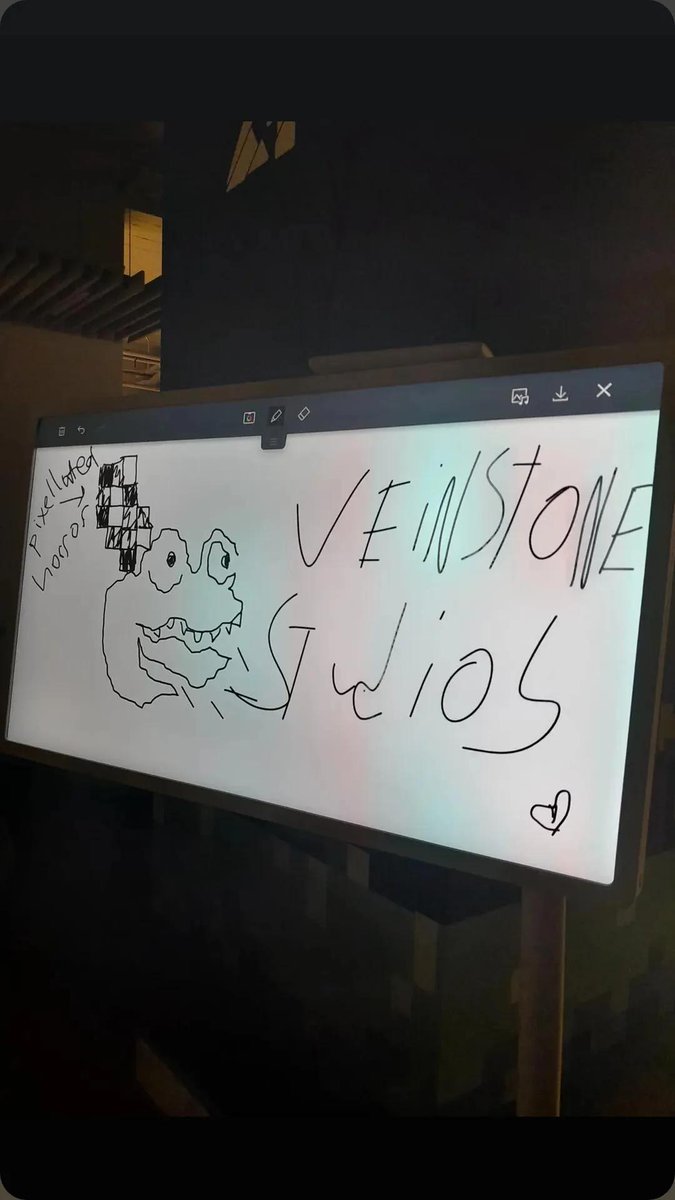 pixellated
horror
VEiNSTONE
STudioS